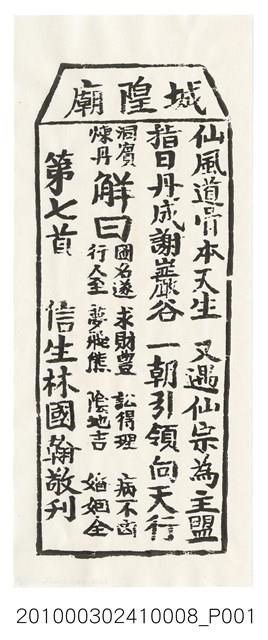 城隍廟
仙風道骨本天生 又遇仙宗為主盟
指日丹成謝巖谷 一朝引領向天行
洞賓煉丹
解曰
圖名遂 求財豐 訟得理 病不凶
行人至 夢飛熊 陰地吉 婚姻全
第七首 信生林國翰敬刊
201000302410008_P001